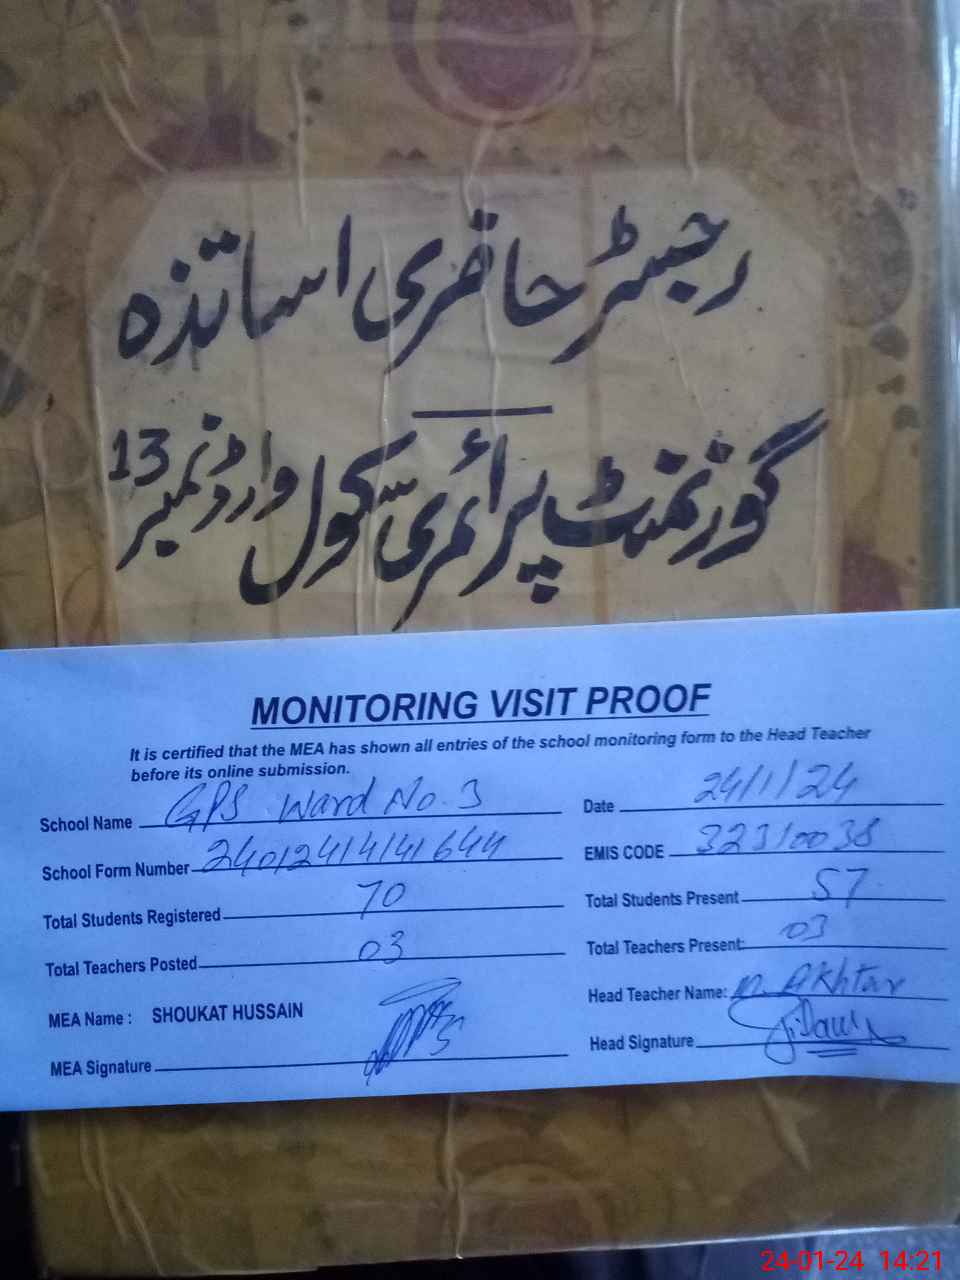 رجسٹر حاضری اساتذہ
گورنمنٹ پرائمری سکول وارڈ نمبر 13
MONITORING VISIT PROOF
It is certified that the MEA has shown all entries of the school monitoring form to the Head Teacher
before its online submission.
School Name GPS Ward No. 3 Date 24/1/24
School Form Number 24012414141644 EMIS CODE 32310038
Total Students Registered 70 Total Students Present 57
Total Teachers Posted 03 Total Teachers Present: 03
MEA Name : SHOUKAT HUSSAIN Head Teacher Name: Akhtar
MEA Signature Head Signature
24-01-24 14:21